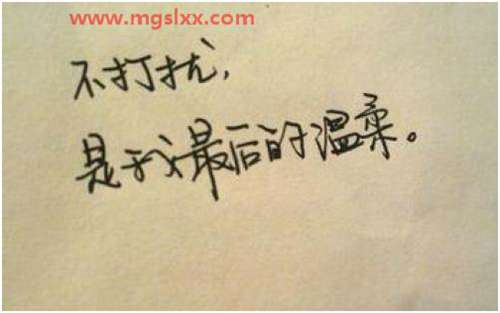 www.mgslxx.com
不打扰,
是我最后的温柔。